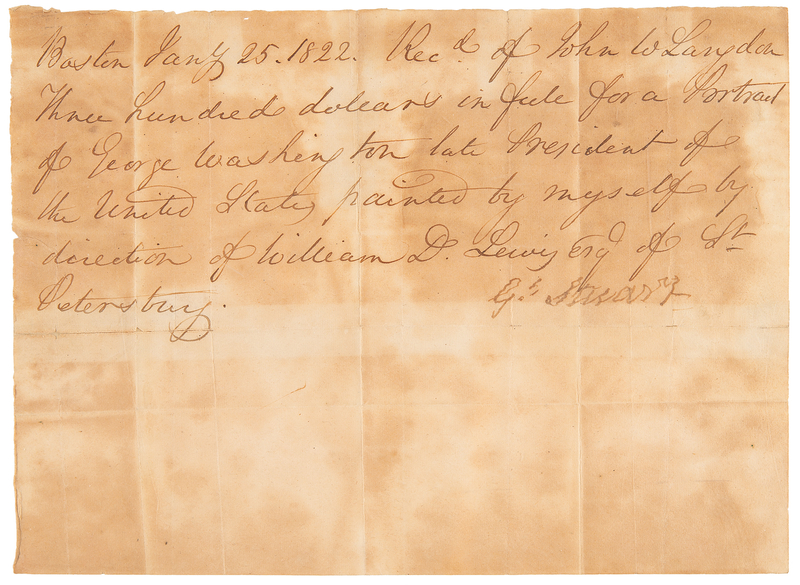 Boston Jany 25. 1822. Recd. of John W Langdon
Three hundred dolears in full for a Portrait
of George Washington late President of
the United States painted by myself by
direction of William D. Lewis Esqr of St
Petersburg.
G. Stuart